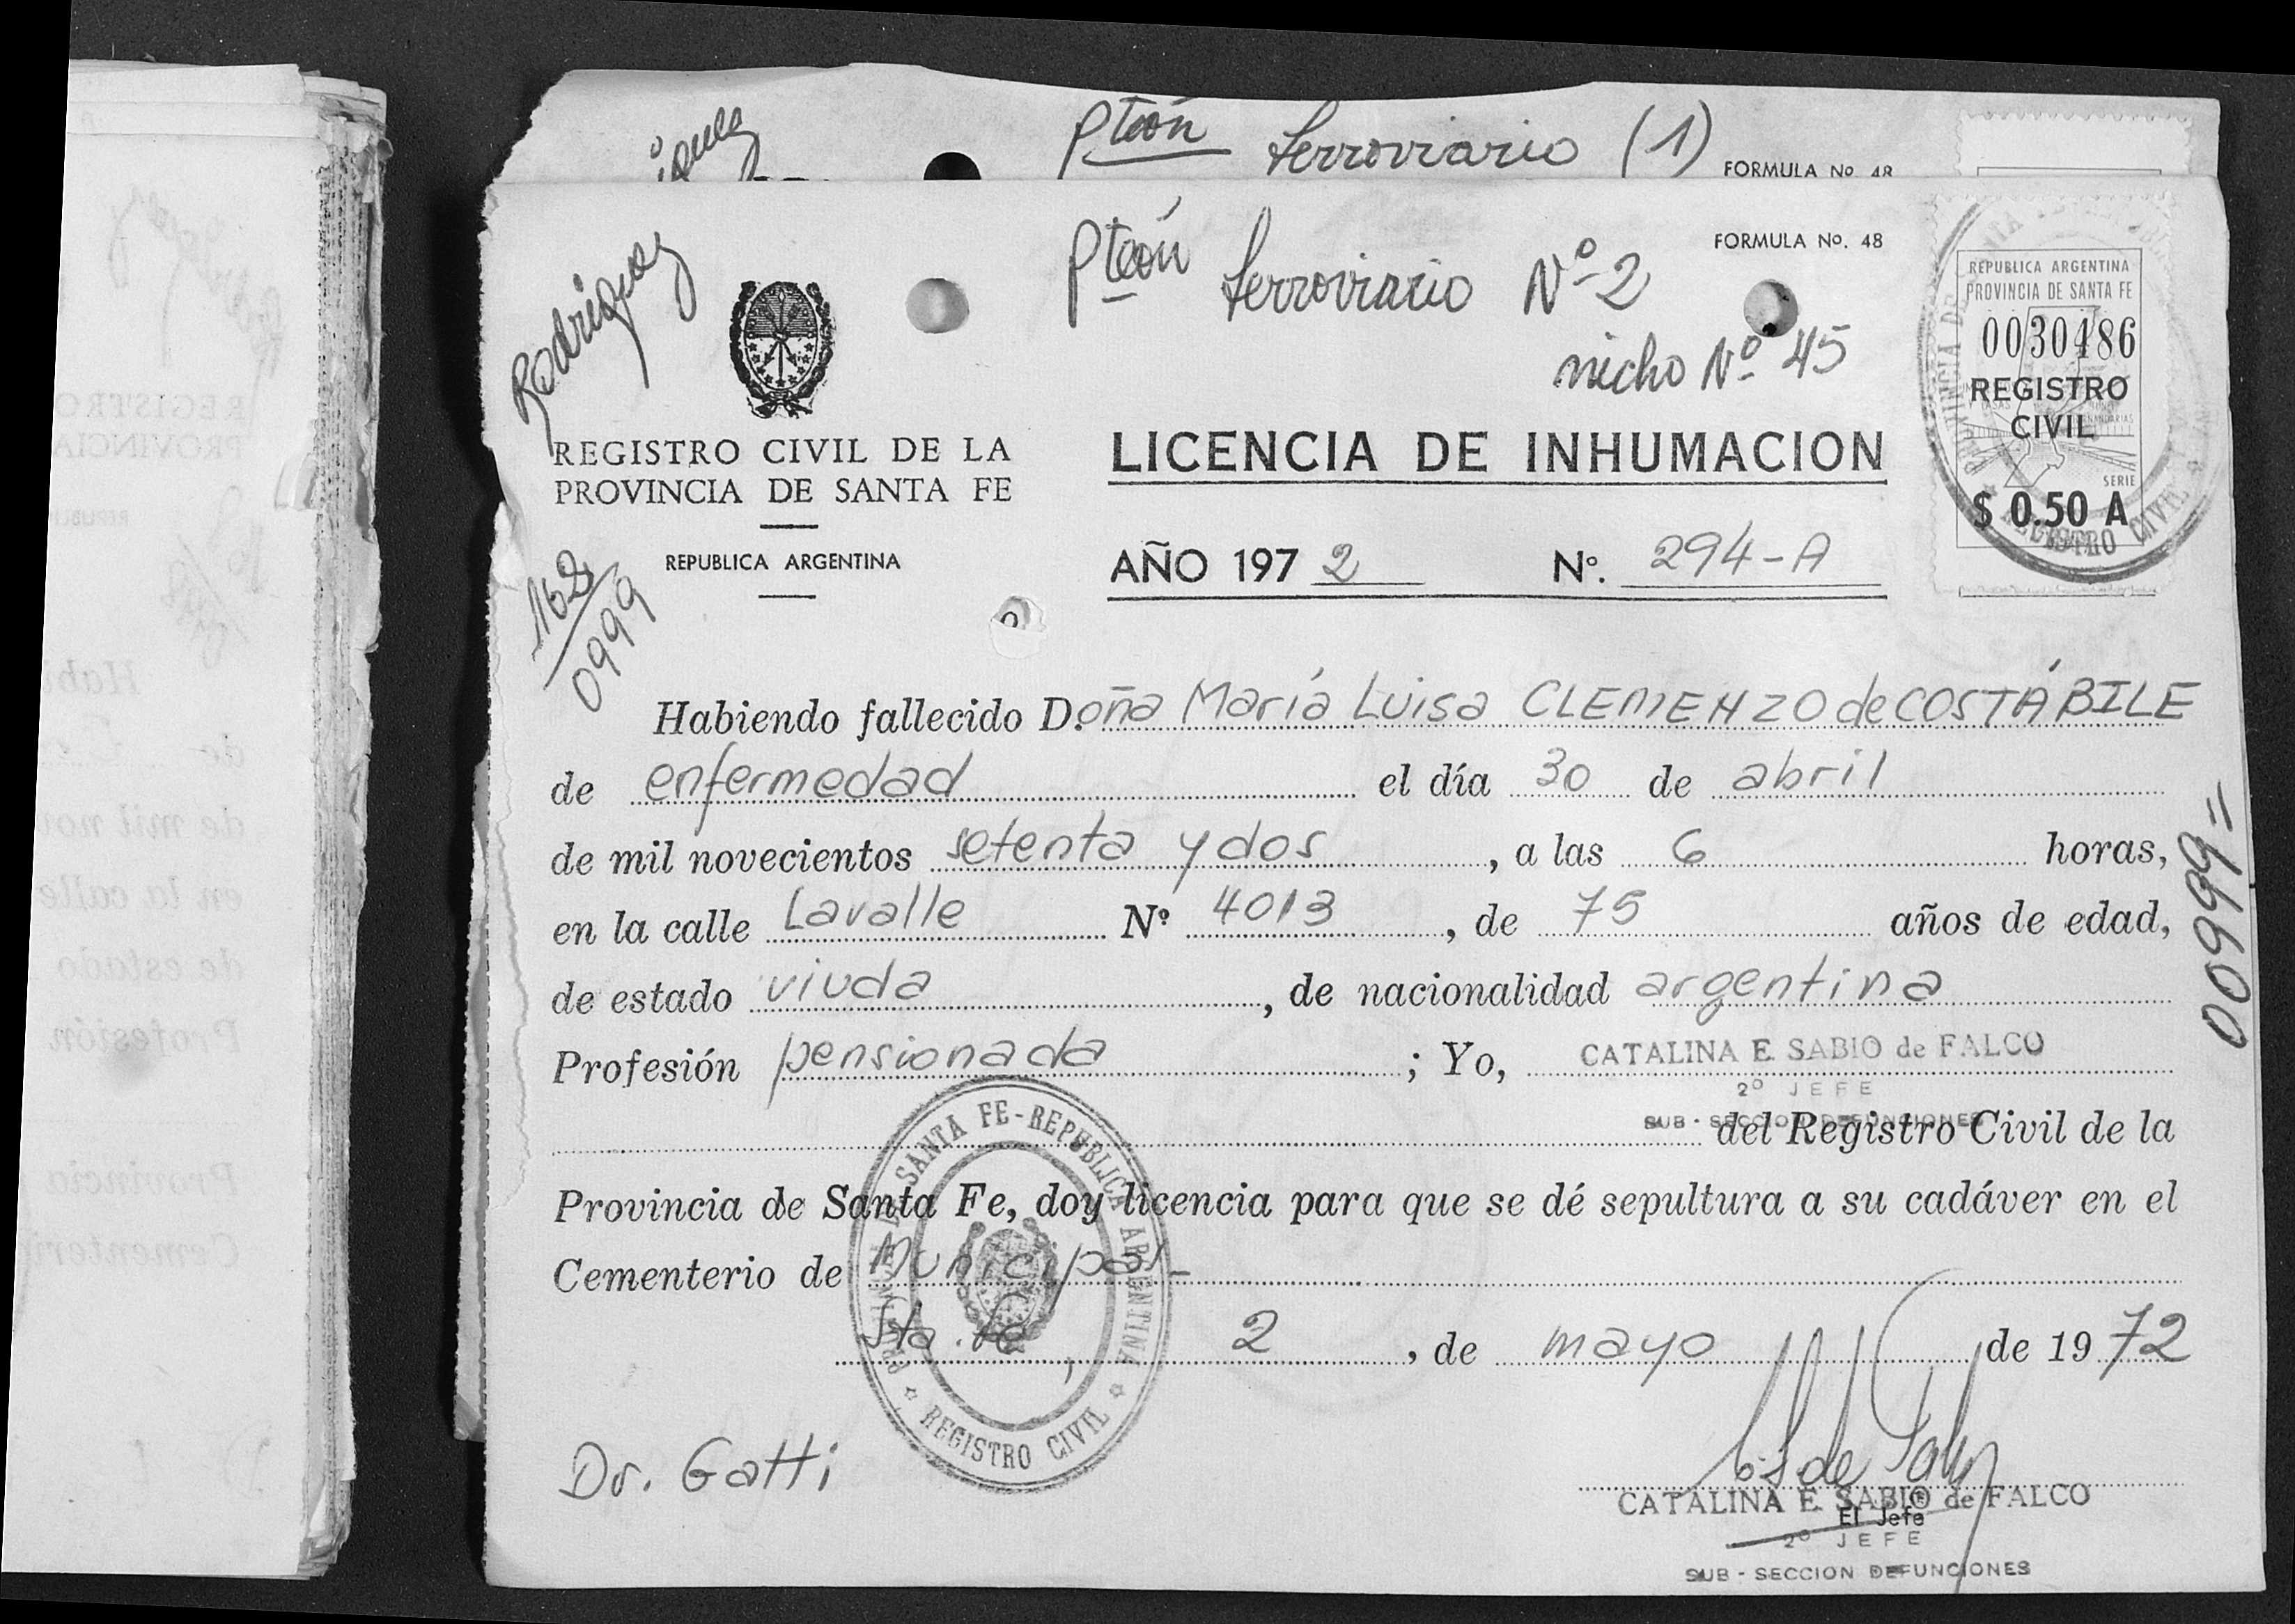 Pteón ferroviario (1)
FORMULA No. 48
Rodriguez
Pteón
ferroviario Nº 2
nicho Nº 45
FORMULA No. 48
REPUBLICA ARGENTINA
PROVINCIA DE SANTA FE
0030486
REGISTRO
CIVIL
SERIE
$ 0.50 A
REGISTRO CIVIL DE LA
PROVINCIA DE SANTA FE
REPUBLICA ARGENTINA
LICENCIA DE INHUMACION
AÑO 1972 Nº. 294-A
162
0999
Habiendo fallecido Doña María Luisa CLEMENZO de COSTÁBILE
de enfermedad el día 30 de abril
de mil novecientos setenta y dos, a las 6 horas,
en la calle Lavalle Nº 4013, de 75 años de edad,
de estado viuda, de nacionalidad argentina
Profesión pensionada; Yo, CATALINA E. SABIO de FALCO
2º JEFE
SUB - SECCION DEFUNCIONES
del Registro Civil de la
Provincia de Santa Fe, doy licencia para que se dé sepultura a su cadáver en el
Cementerio de Municipal
Sta. Fe, 2, de mayo de 1972
00999=
PROVINCIA DE SANTA FE - REPUBLICA ARGENTINA
REGISTRO CIVIL
Dr. Gatti
CATALINA E. SABIO de FALCO
El Jefe
2º JEFE
SUB - SECCION DEFUNCIONES